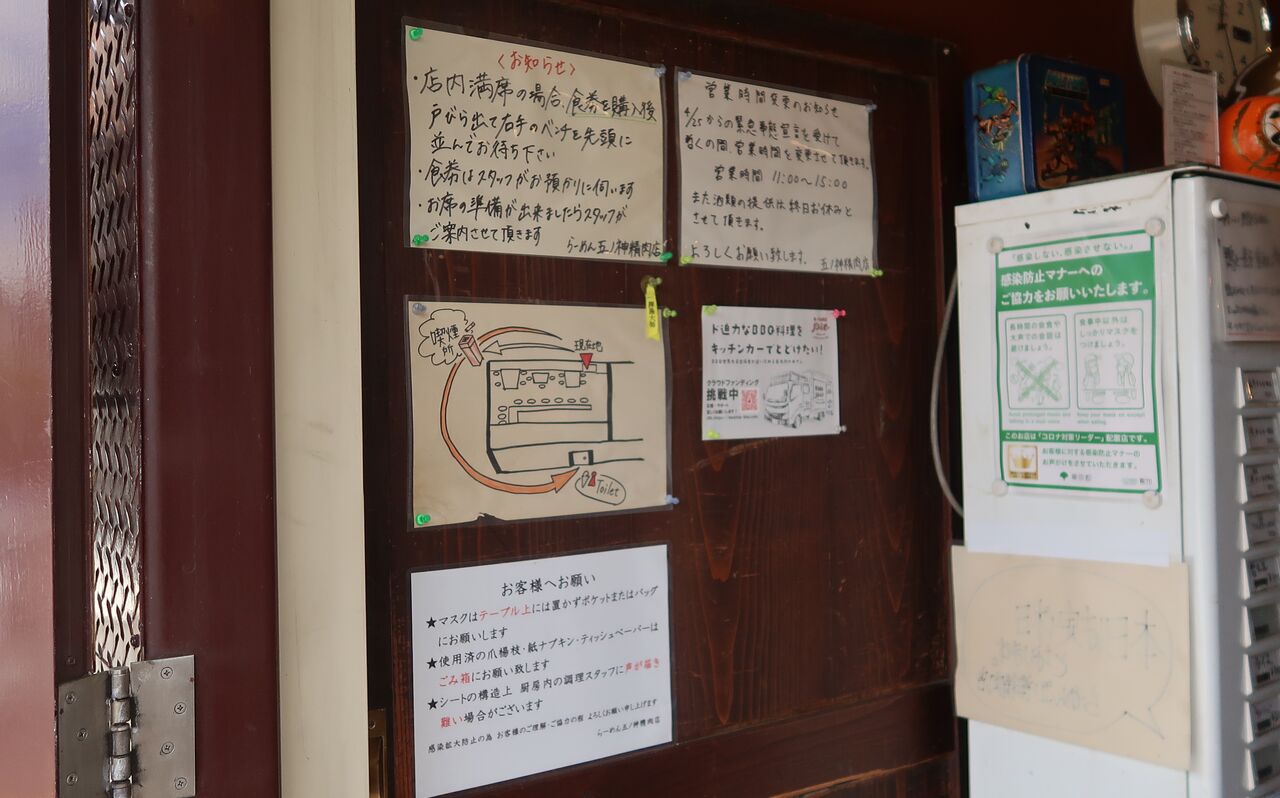 〈お知らせ〉
・店内満席の場合、食券を購入後
戸びら出て右手のベンチを先頭に
並んでお待ち下さい
・食券はスタッフがお預かりに伺います
・お席の準備が出来ましたらスタッフが
ご案内させて頂きます
らーめん五ノ神精肉店
営業時間変更のお知らせ
4/25からの緊急事態宣言を受けて
暫くの間、営業時間を変更させて頂きます。
営業時間 11:00〜15:00
また酒類の提供は終日お休みと
させて頂きます。
よろしくお願い致します。 五ノ神精肉店
喫煙所
現在地
Toilet
ド迫力なBBQ料理を
キッチンカーでとどけたい!
クラウドファンディング
挑戦中
お客様へお願い
★マスクはテーブル上には置かずポケットまたはバッグ
にお願いします
★使用済の爪楊枝・紙ナプキン・ティッシュペーパーは
ごみ箱にお願い致します
★シートの構造上 厨房内の調理スタッフに声が届き
難い場合がございます
感染拡大防止の為 お客様のご理解・ご協力の程 よろしくお願い申し上げます
らーめん五ノ神精肉店
「感染しない、感染させない。」
感染防止マナーへの
ご協力をお願いいたします。
長時間の会食や
大声での会話は
避けましょう。
食事中以外は
しっかりマスクを
つけましょう。
Avoid prolonged meals and
talking in a loud voice
Keep your mask on except
when eating.
このお店は「コロナ対策リーダー」配置店です。
お客様に対する感染防止マナーの
お声がけをさせていただきます。
東京都